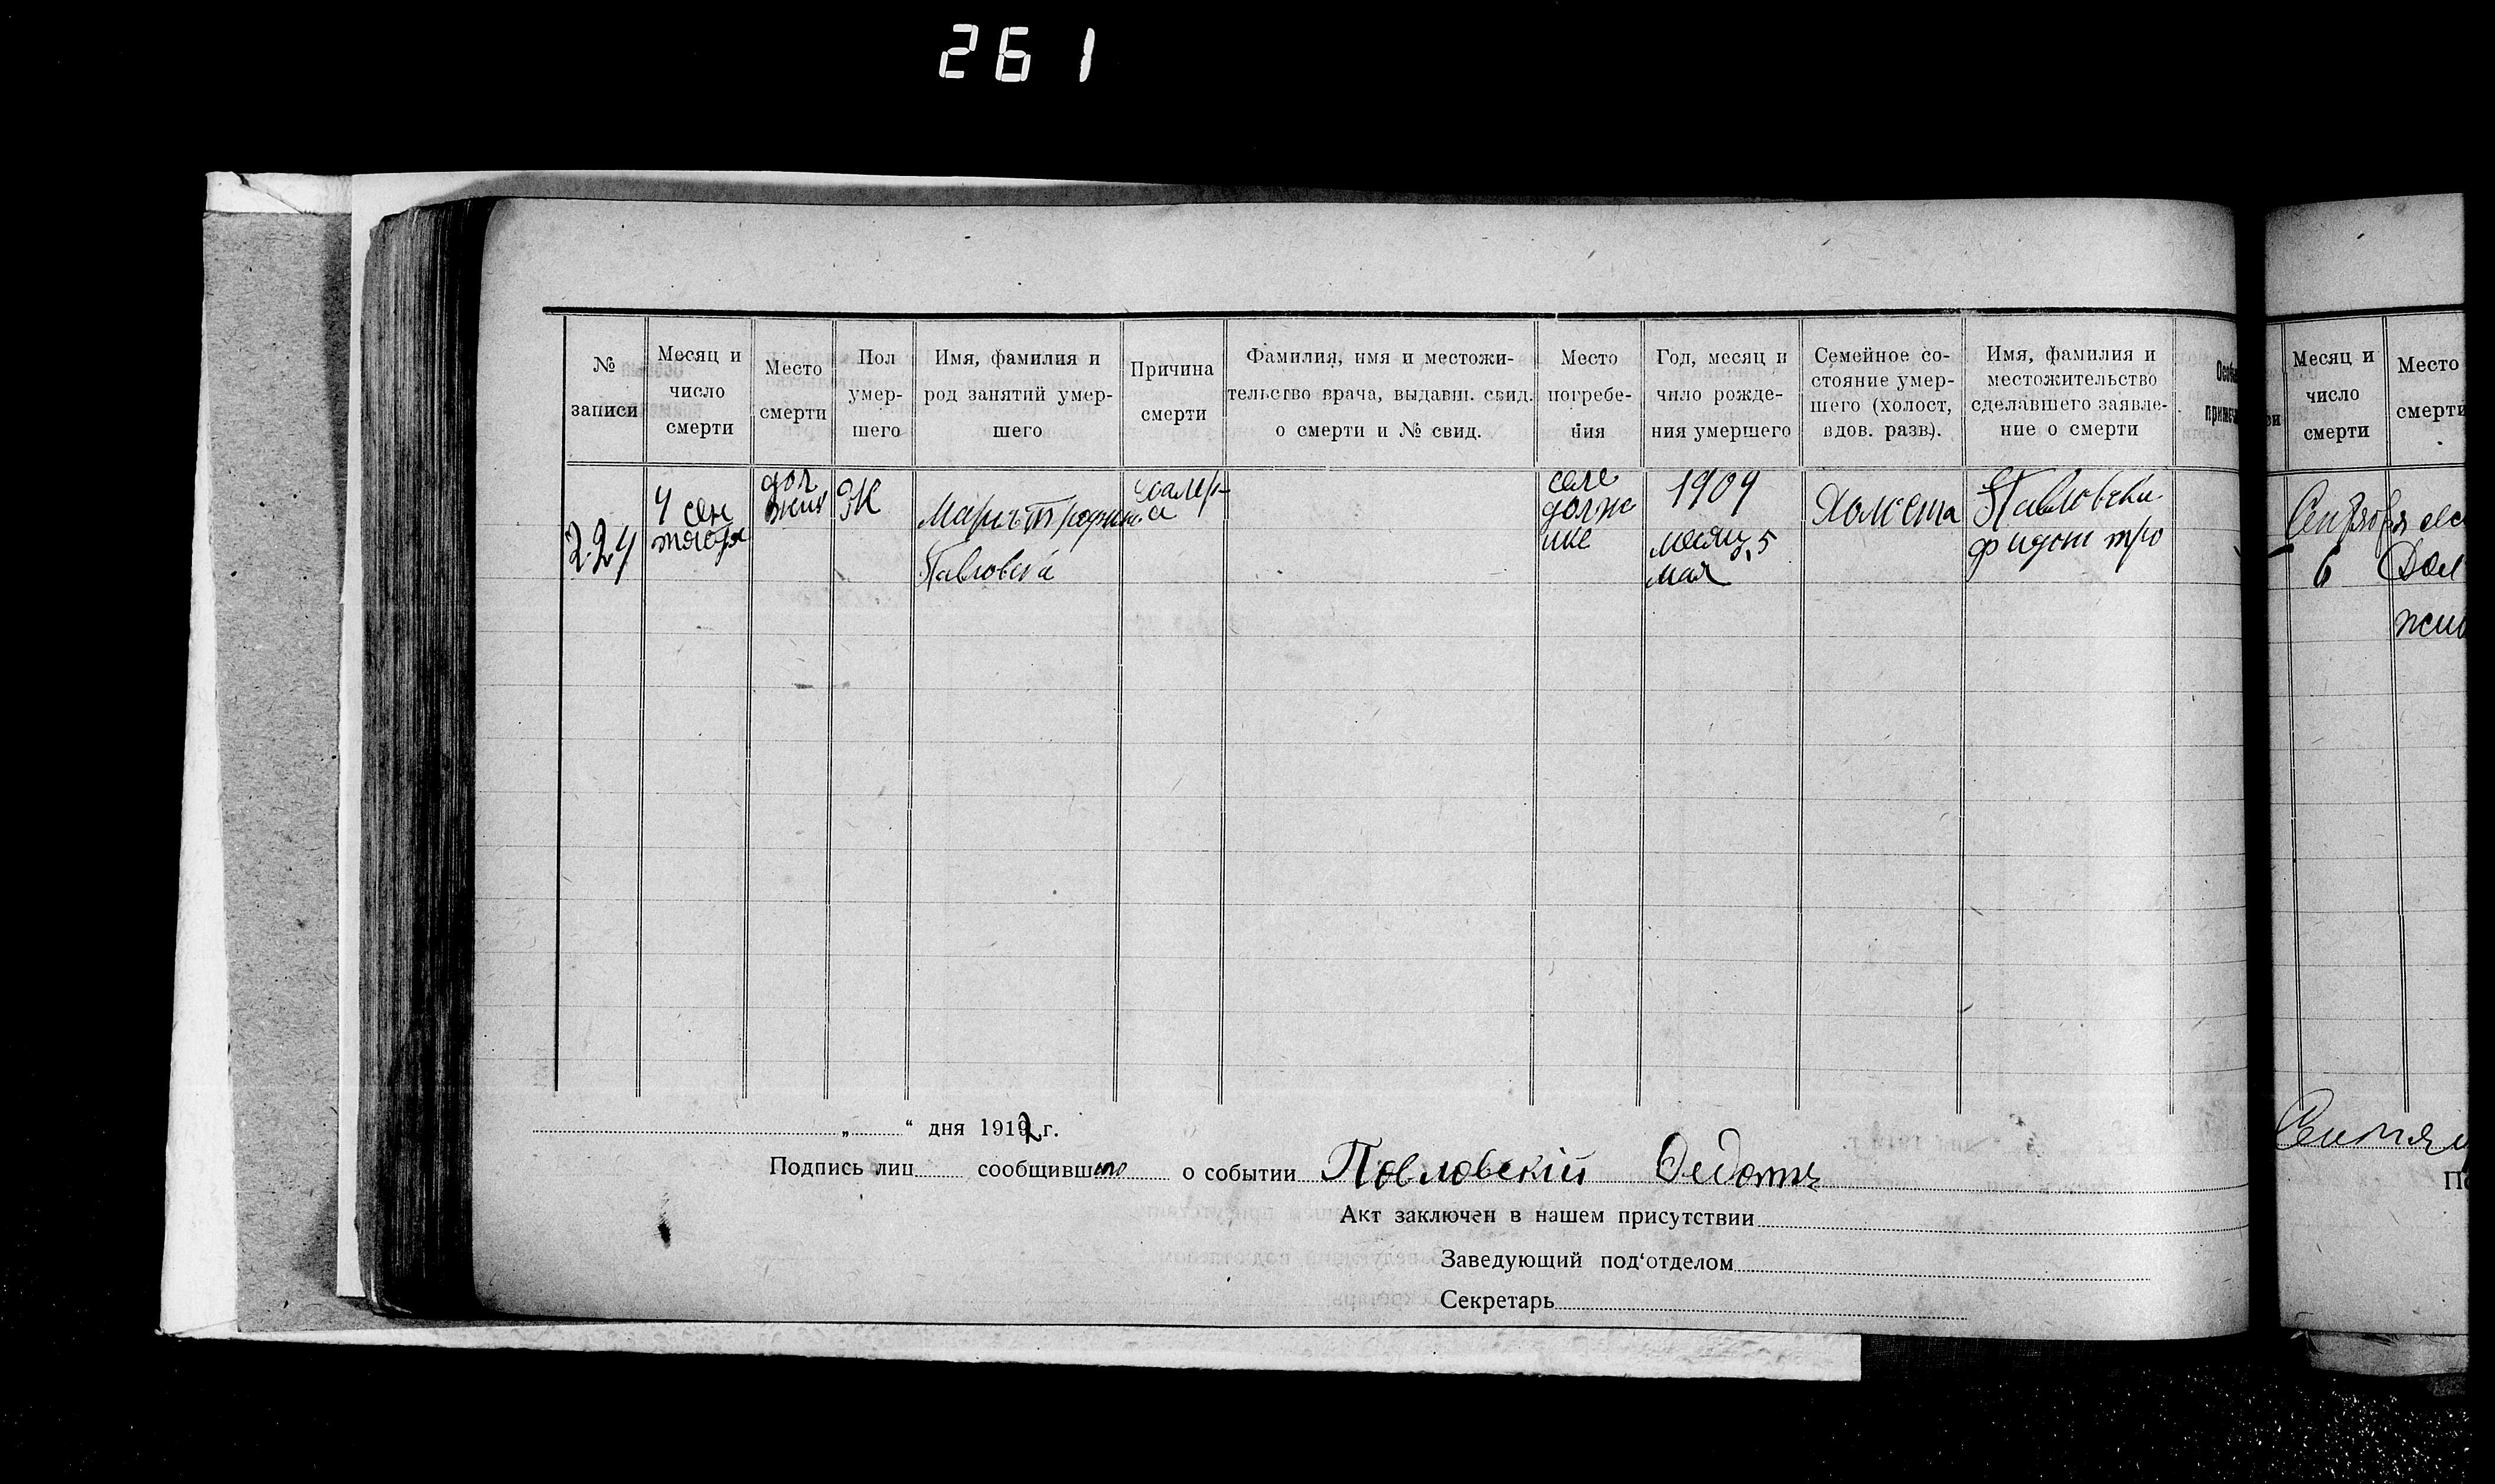 261
№ записи
Месяц и число смерти
Место смерти
Пол умер-шего
Имя, фамилия и род занятий умер-шего
Причина смерти
Фамилия, имя и местожи-тельство врача, выдавш. свид. о смерти и № свид.
Место погребе-ния
Год, месяц и чило рожде-ния умершего
Семейное со-стояние умер-шего (холост, вдов. разв).
Имя, фамилия и местожительство сделавшего заявле-ние о смерти
224
4 сен
тября
дол
жик
Ж
Мария
Павловска
холер-
а
селе
долже
ике
1909
месяц 5
мая
Павловски
„ “ дня 1919 2 г.
Подпись лиц сообщивш его о событии Павловскій Федотъ
Акт заключен в нашем присутствии
Заведующий под‘отделом
Секретарь
Месяц и число смерти
Место смерти
6
Дол
жик